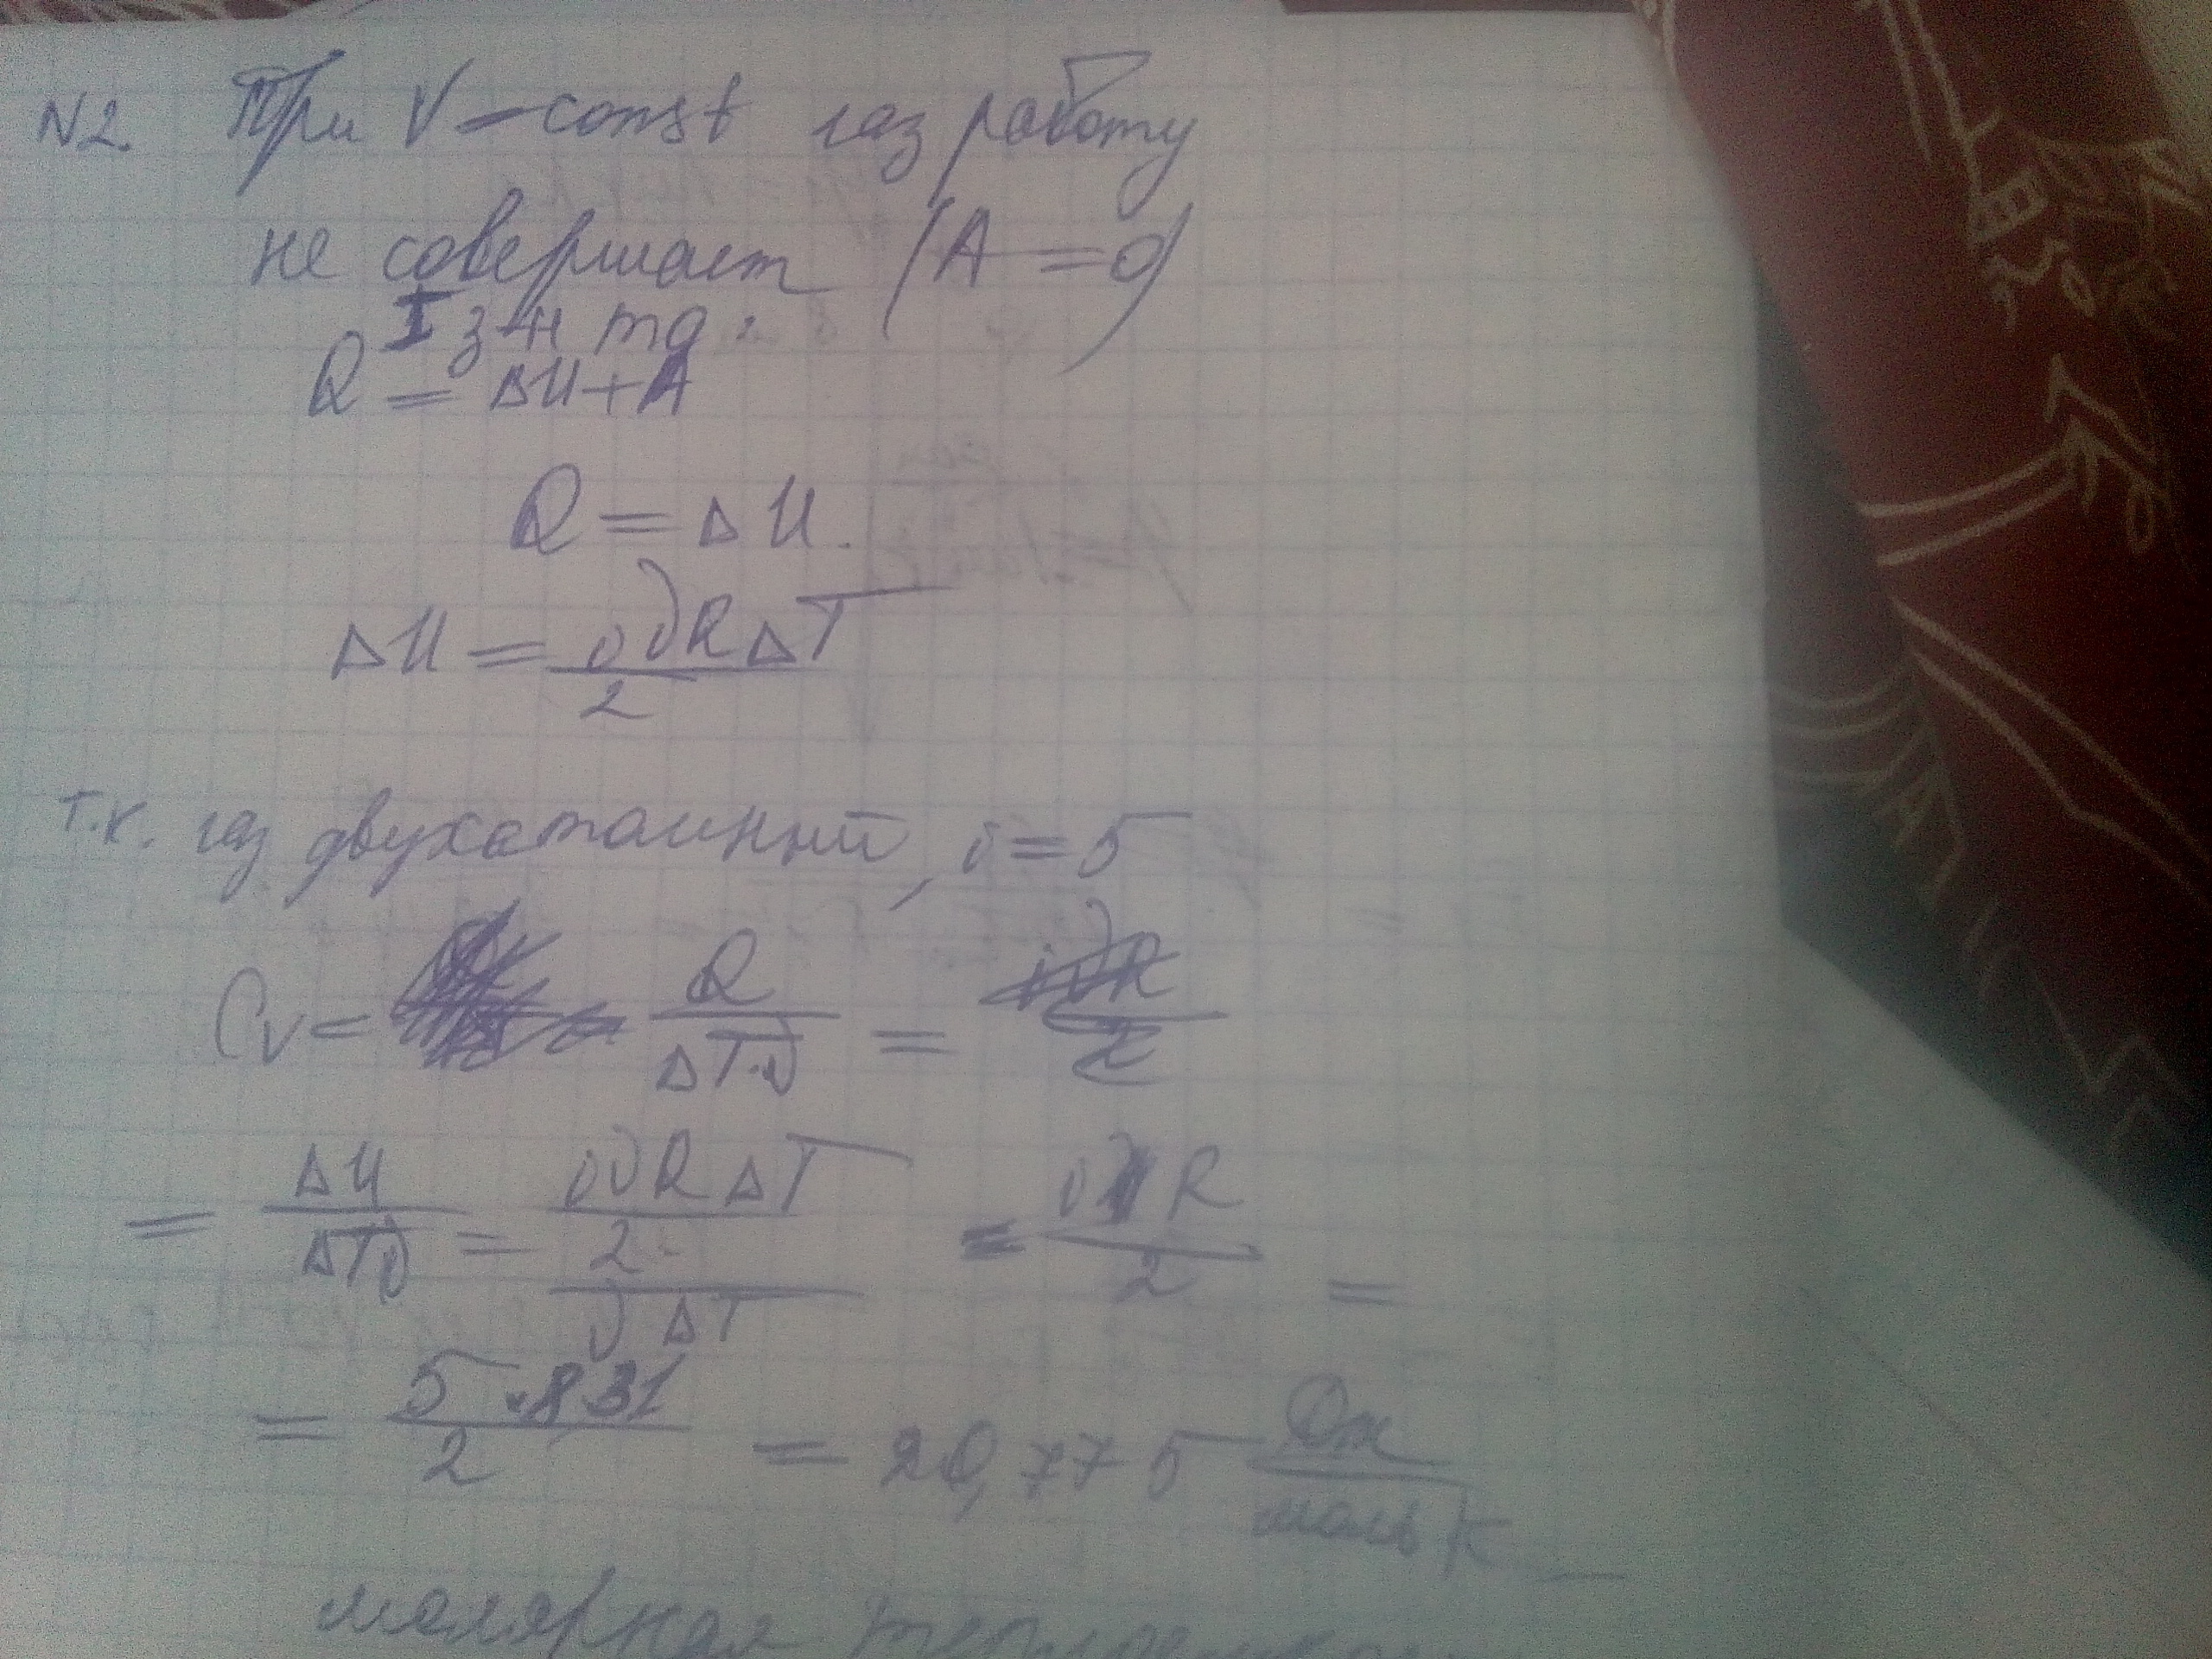 N2. При V = const газ работу
не совершает (A = 0)
I з-н тд:
Q = ΔU + A
Q = ΔU.
ΔU = iνRΔT / 2
т.к. газ двухатомный, i = 5
Cv = Q / ΔT·ν =
= ΔU / ΔTν = iνRΔT / 2 / νΔT = iR / 2 =
= 5 · 8,31 / 2 = 20,775 Дж / моль К
молярная